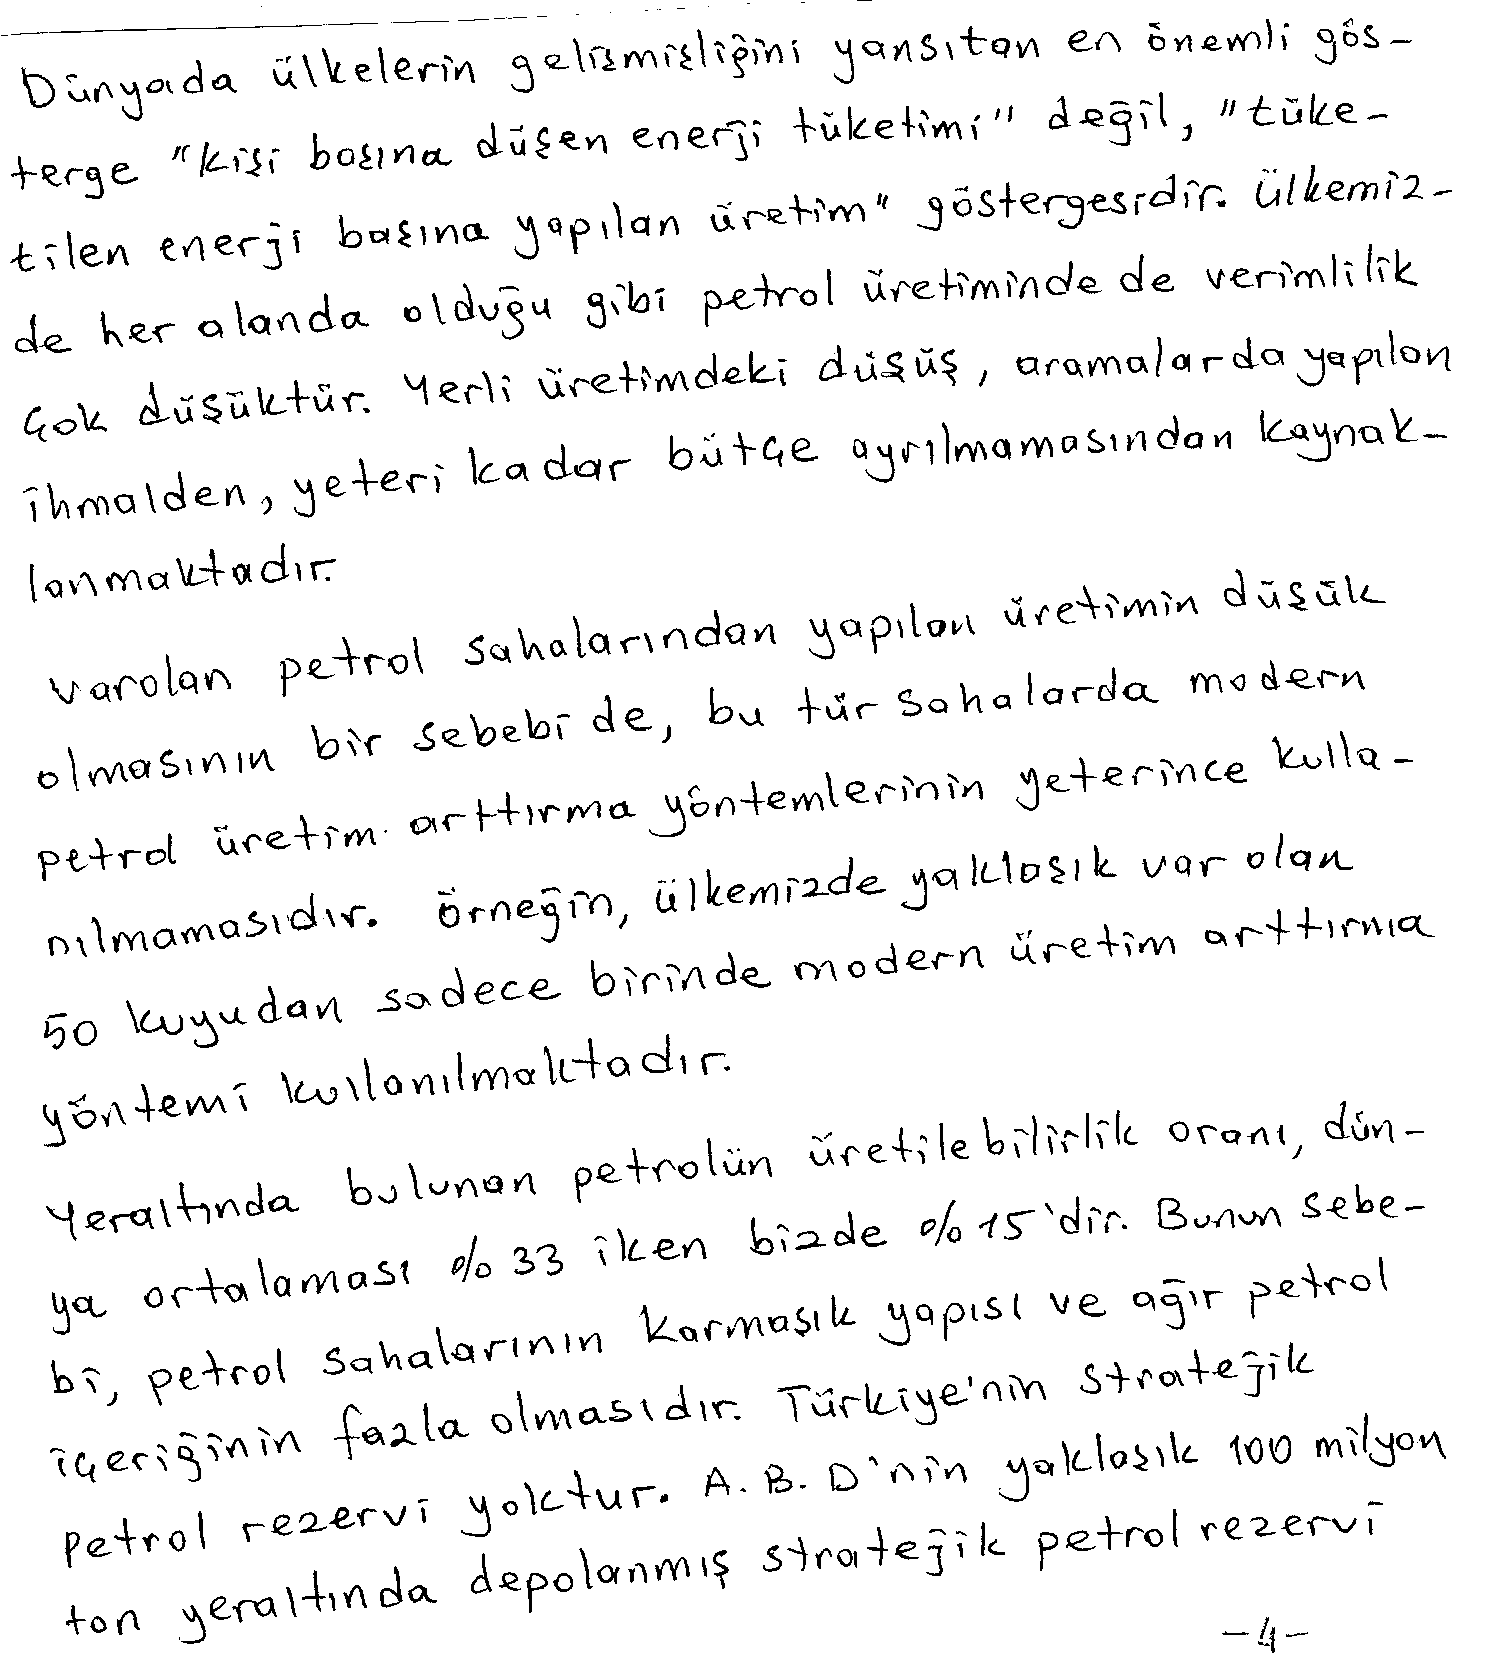 Dünyada ülkelerin gelişmişliğini yansıtan en önemli gös-
terge "kişi başına düşen enerji tüketimi" değil, "tüke-
tilen enerji başına yapılan üretim" göstergesidir. Ülkemiz-
de her alanda olduğu gibi petrol üretiminde de verimlilik
çok düşüktür. Yerli üretimdeki düşüş, aramalarda yapılan
ihmalden, yeteri kadar bütçe ayrılmamasından kaynak-
lanmaktadır.
Varolan petrol sahalarından yapılan üretimin düşük
olmasının bir sebebi de, bu tür sahalarda modern
petrol üretim arttırma yöntemlerinin yeterince kulla-
nılmamasıdır. Örneğin, ülkemizde yaklaşık var olan
50 kuyudan sadece birinde modern üretim arttırma
yöntemi kullanılmaktadır.
Yeraltında bulunan petrolün üretilebilirlik oranı, dün-
ya ortalaması % 33 iken bizde % 15'dir. Bunun sebe-
bi, petrol sahalarının karmaşık yapısı ve ağır petrol
içeriğinin fazla olmasıdır. Türkiye'nin stratejik
petrol rezervi yoktur. A.B.D'nin yaklaşık 100 milyon
ton yeraltında depolanmış stratejik petrol rezervi
-4-